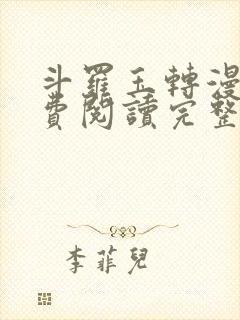 斗羅玉轉漫
費閱讀完整
李菲兒